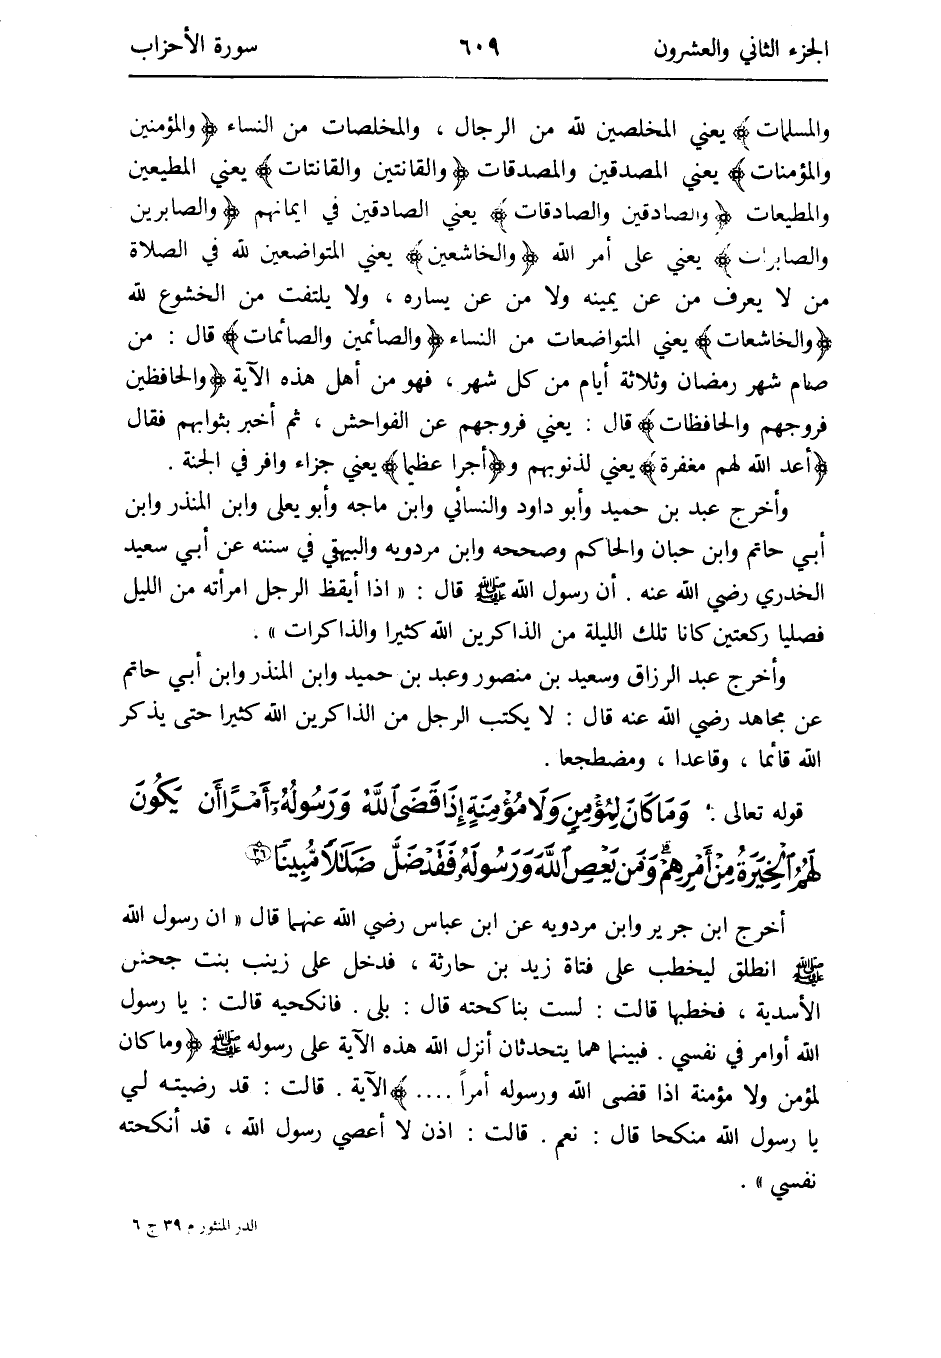 الجزء الثاني والعشرون ٦٠٩ سورة الأحزاب
والمسلمات ﴾ يعني المخلصين لله من الرجال ، والمخلصات من النساء ﴿ والمؤمنين
والمؤمنات ﴾ يعني المصدقين والمصدقات ﴿ والقانتين والقانتات ﴾ يعني المطيعين
والمطيعات ﴿ والصادقين والصادقات ﴾ يعني الصادقين في ايمانهم ﴿ والصابرين
والصابرات ﴾ يعني على أمر الله ﴿ والخاشعين ﴾ يعني المتواضعين لله في الصلاة
من لا يعرف من عن يمينه ولا من عن يساره ، ولا يلتفت من الخشوع لله
﴿ والخاشعات ﴾ يعني المتواضعات من النساء ﴿ والصائمين والصائمات ﴾ قال : من
صام شهر رمضان وثلاثة أيام من كل شهر ، فهو من أهل هذه الآية ﴿ والحافظين
فروجهم والحافظات ﴾ قال : يعني فروجهم عن الفواحش ، ثم أخبر بثوابهم فقال
﴿ أعد الله لهم مغفرة ﴾ يعني لذنوبهم و ﴿ أجرا عظيما ﴾ يعني جزاء وافر في الجنة .
وأخرج عبد بن حميد وأبو داود والنسائي وابن ماجه وأبو يعلى وابن المنذر وابن
أبي حاتم وابن حبان والحاكم وصححه وابن مردويه والبيهقي في سننه عن أبي سعيد
الخدري رضي الله عنه . أن رسول الله ﷺ قال : « اذا أيقظ الرجل امرأته من الليل
فصليا ركعتين كانا تلك الليلة من الذاكرين الله كثيرا والذاكرات » .
وأخرج عبد الرزاق وسعيد بن منصور وعبد بن حميد وابن المنذر وابن أبي حاتم
عن مجاهد رضي الله عنه قال : لا يكتب الرجل من الذاكرين الله كثيرا حتى يذكر
الله قائما ، وقاعدا ، ومضطجعا .
قوله تعالى : وَمَا كَانَ لِمُؤْمِنٍ وَلَا مُؤْمِنَةٍ إِذَا قَضَى ٱللَّهُ وَرَسُولُهُۥٓ أَمْرًا أَن يَكُونَ
لَهُمُ ٱلْخِيَرَةُ مِنْ أَمْرِهِمْ ۗ وَمَن يَعْصِ ٱللَّهَ وَرَسُولَهُۥ فَقَدْ ضَلَّ ضَلَٰلًا مُّبِينًا ٣٦
أخرج ابن جرير وابن مردويه عن ابن عباس رضي الله عنهما قال « ان رسول الله
ﷺ انطلق ليخطب على فتاة زيد بن حارثة ، فدخل على زينب بنت جحش
الأسدية ، فخطبها قالت : لست بناكحته قال : بلى . فانكحيه قالت : يا رسول
الله أوامر في نفسي . فبينما هما يتحدثان أنزل الله هذه الآية على رسوله ﷺ ﴿ وما كان
لمؤمن ولا مؤمنة اذا قضى الله ورسوله أمراً .... ﴾ الآية . قالت : قد رضيته لي
يا رسول الله منكحا قال : نعم . قالت : اذن لا أعصي رسول الله ، قد أنكحته
نفسي » .
الدر المنثور م ٣٩ ج ٦